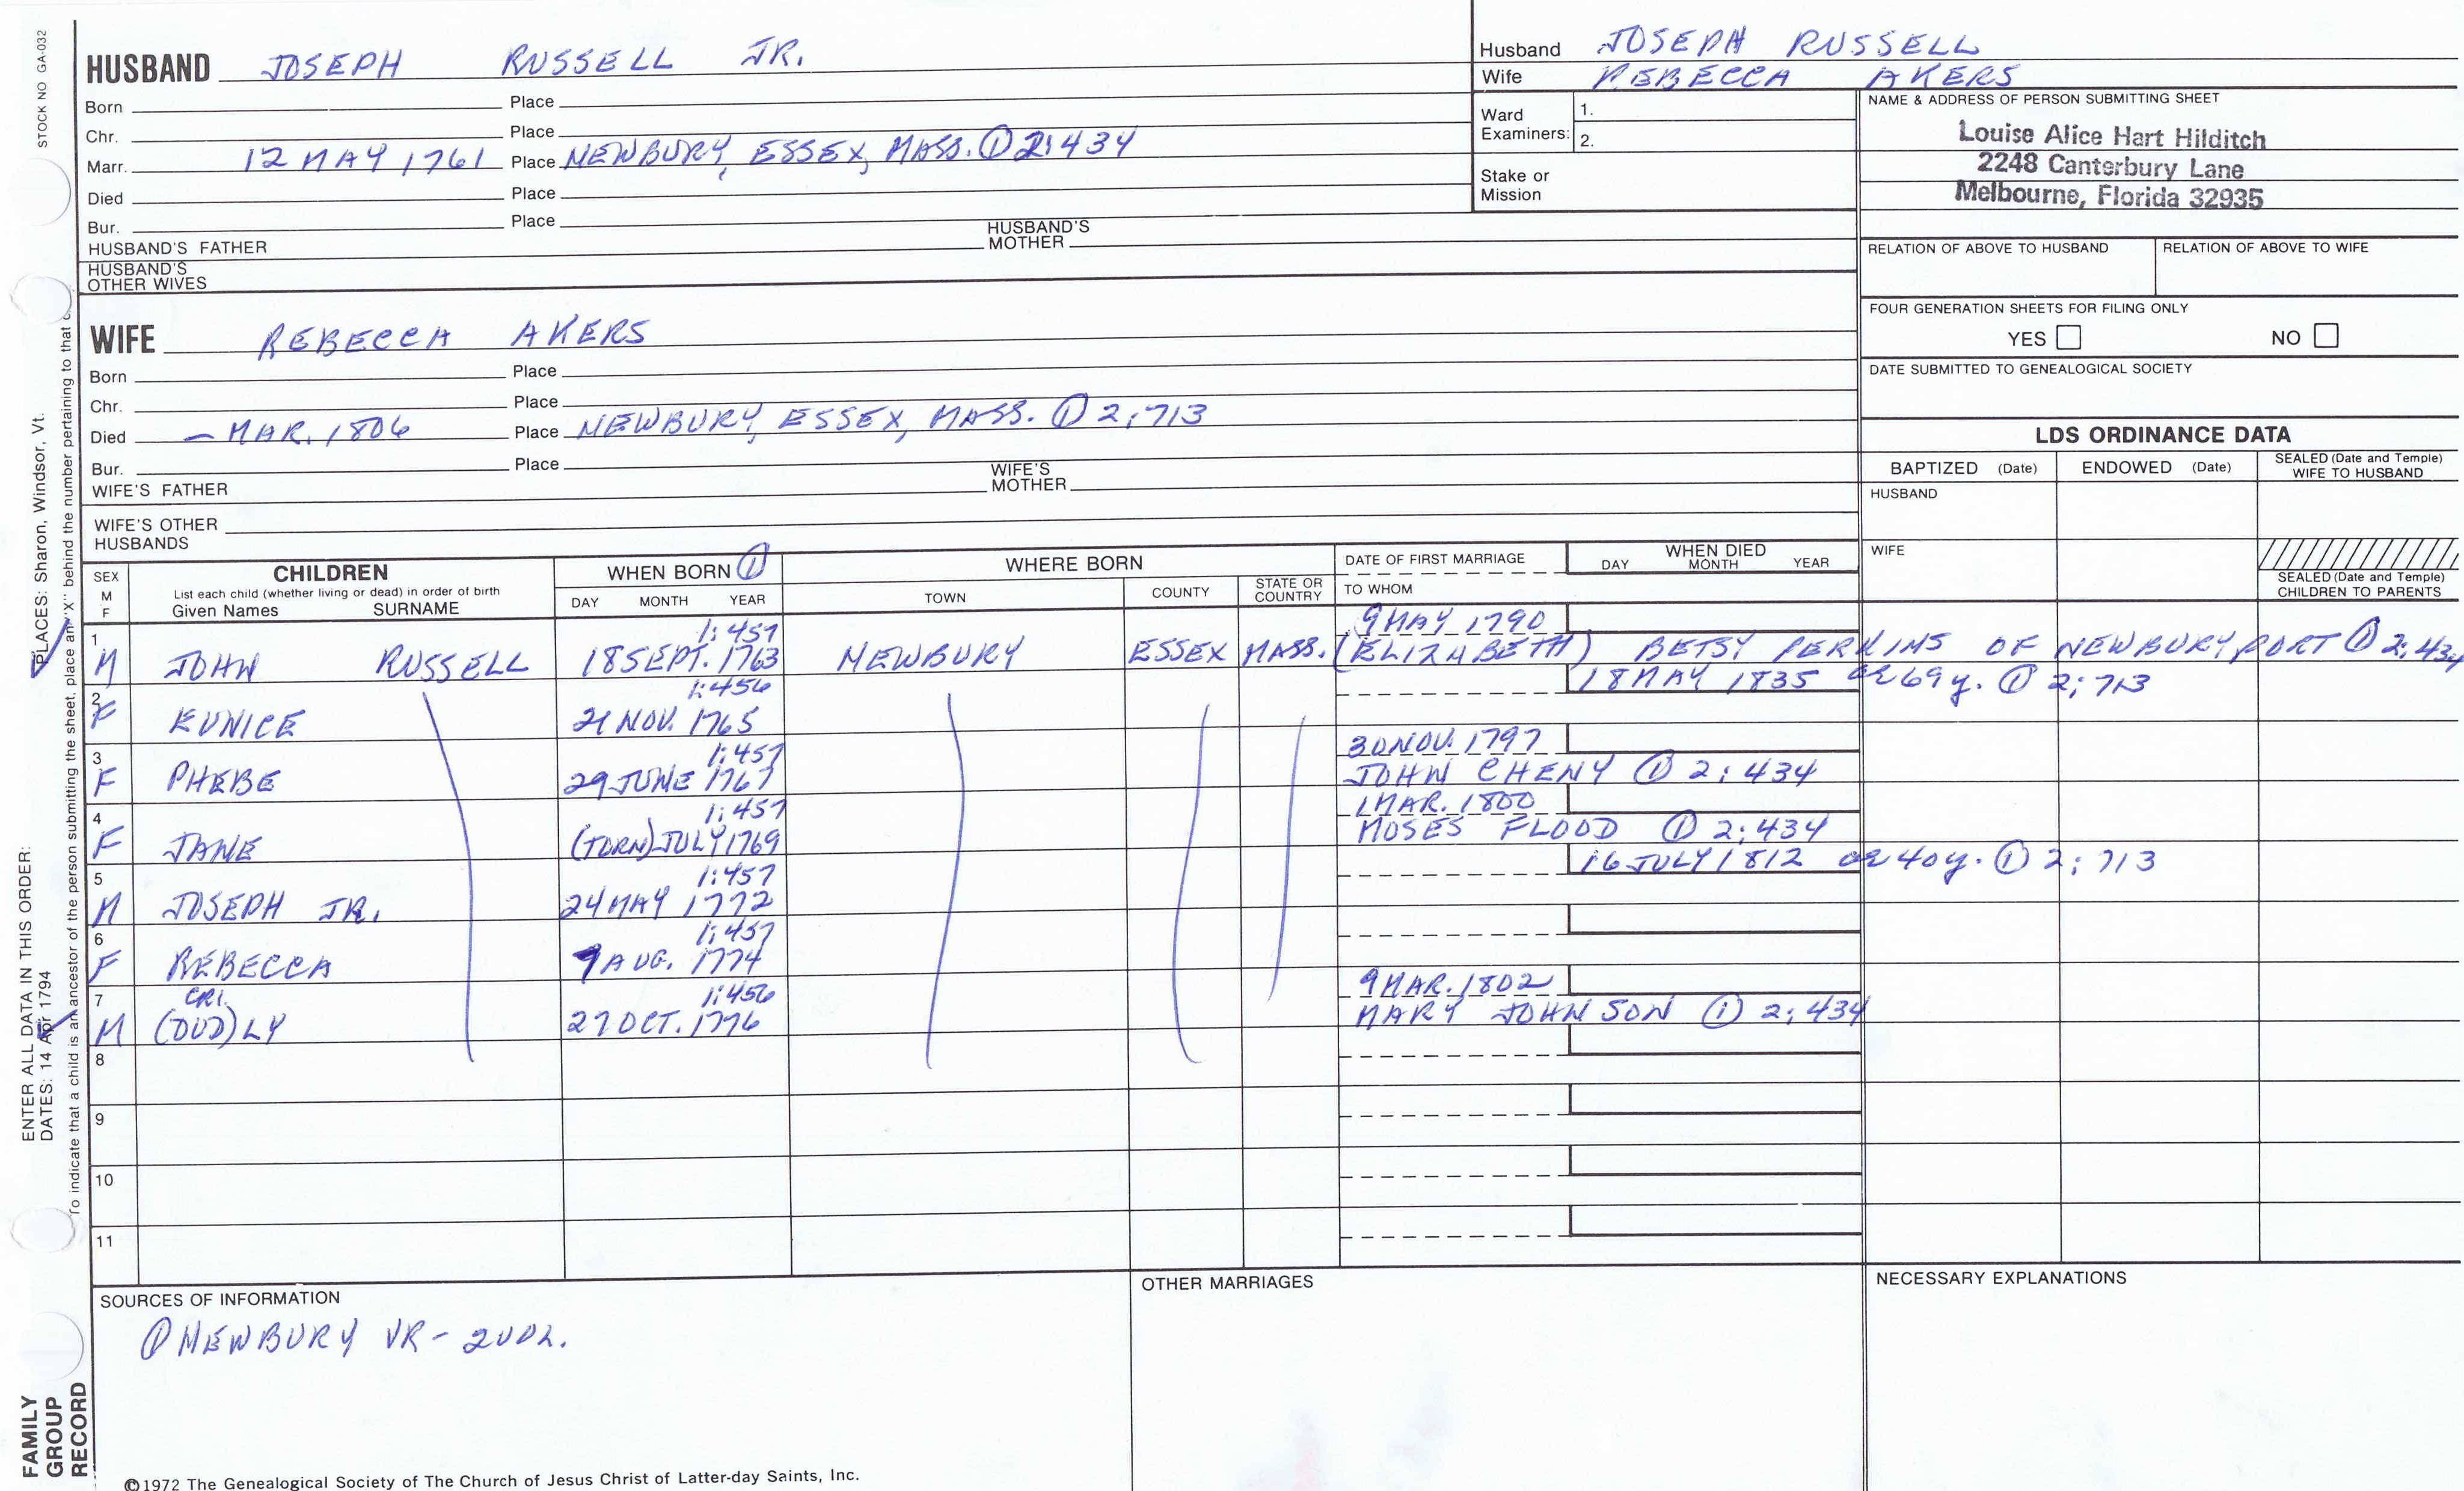 STOCK NO GA-032
HUSBAND JOSEPH RUSSELL JR.
Born Place
Chr. Place
Marr. 12 MAY 1761 Place NEWBURY, ESSEX, MASS. ① 2:434
Died Place
Bur. Place
HUSBAND'S FATHER HUSBAND'S MOTHER
HUSBAND'S OTHER WIVES
Husband JOSEPH RUSSELL
Wife REBECCA AKERS
Ward Examiners: 1.
2.
Stake or Mission
NAME & ADDRESS OF PERSON SUBMITTING SHEET
Louise Alice Hart Hilditch
2248 Canterbury Lane
Melbourne, Florida 32935
RELATION OF ABOVE TO HUSBAND RELATION OF ABOVE TO WIFE
FOUR GENERATION SHEETS FOR FILING ONLY
YES NO
DATE SUBMITTED TO GENEALOGICAL SOCIETY
WIFE REBECCA AKERS
Born Place
Chr. Place
Died — MAR. 1806 Place NEWBURY, ESSEX, MASS. ① 2:713
Bur. Place
WIFE'S FATHER WIFE'S MOTHER
WIFE'S OTHER HUSBANDS
LDS ORDINANCE DATA
BAPTIZED (Date) ENDOWED (Date) SEALED (Date and Temple) WIFE TO HUSBAND
HUSBAND
WIFE
SEALED (Date and Temple) CHILDREN TO PARENTS
SEX M F
CHILDREN
List each child (whether living or dead) in order of birth
Given Names SURNAME
WHEN BORN ①
DAY MONTH YEAR
WHERE BORN
TOWN COUNTY STATE OR COUNTRY
DATE OF FIRST MARRIAGE
TO WHOM
WHEN DIED
DAY MONTH YEAR
1 1:457 9 MAY 1790
M JOHN RUSSELL 18 SEPT. 1763 NEWBURY ESSEX MASS. (ELIZABETH) BETSY PERKINS OF NEWBURYPORT ① 2:434
2 1:456 18 MAY 1835 ae 69 y. ① 2:713
F EUNICE 21 NOV. 1765
3 1:457 30 NOV. 1797
F PHEBE 29 JUNE 1767 JOHN CHENY ① 2:434
4 1:457 1 MAR. 1800
F JANE (TORN) JULY 1769 MOSES FLOOD ① 2:434
5 1:457 16 JULY 1812 ae 40 y. ① 2:713
M JOSEPH JR. 24 MAY 1772
6 1:457
F REBECCA 9 AUG. 1774
7 CRI. 1:456 9 MAR. 1802
M (DUD)LY 27 OCT. 1776 MARY JOHNSON ① 2:434
8
9
10
11
SOURCES OF INFORMATION
① NEWBURY VR - 2 VOL.
OTHER MARRIAGES
NECESSARY EXPLANATIONS
©1972 The Genealogical Society of The Church of Jesus Christ of Latter-day Saints, Inc.
FAMILY GROUP RECORD
ENTER ALL DATA IN THIS ORDER:
DATES: 14 Apr 1794 PLACES: Sharon, Windsor, Vt.
To indicate that a child is an ancestor of the person submitting the sheet, place an "X" behind the number pertaining to that